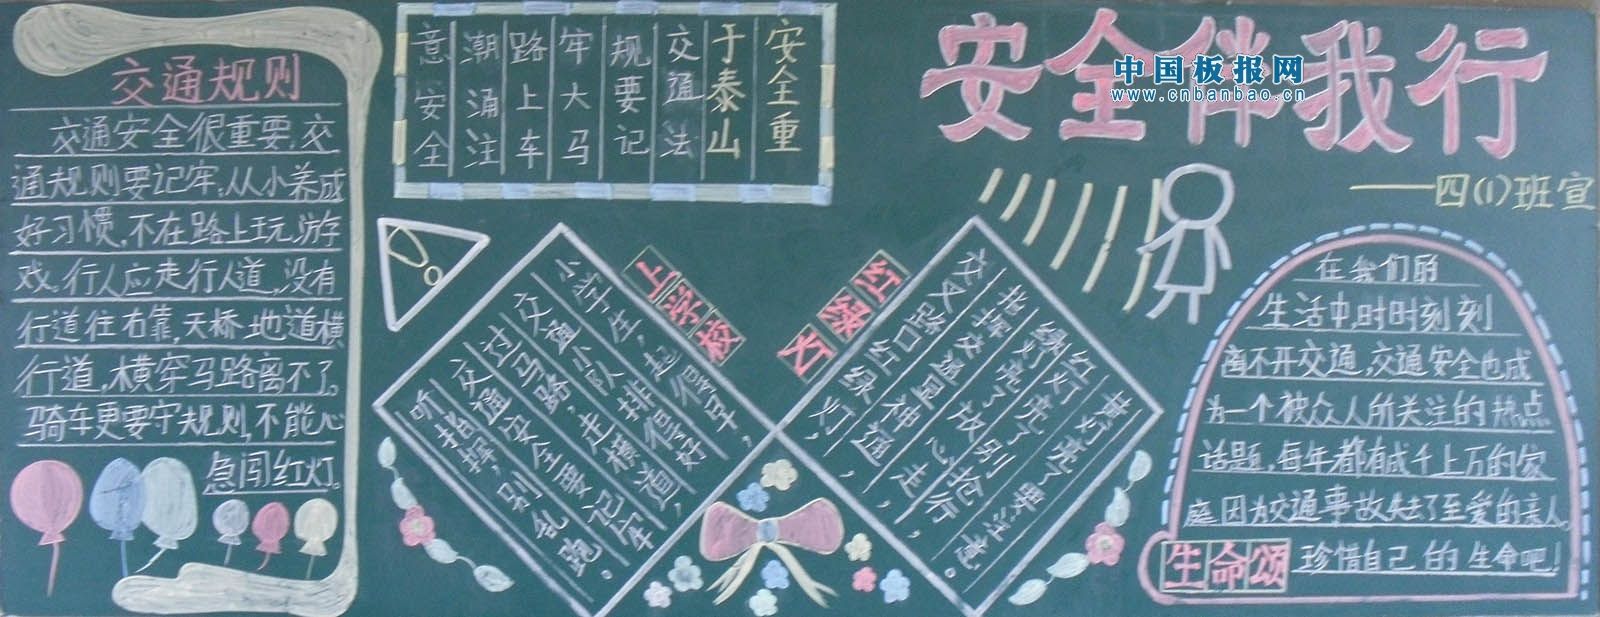 交通规则
交通安全很重要,交
通规则要记牢,从小养成
好习惯,不在路上玩游
戏。行人应走行人道,没有
行道往右靠,天桥地道横
行道,横穿马路离不了。
骑车更要守规则,不能心
急闯红灯。
安全重
于泰山
交通法
规要记
牢大马
路上车
潮涌注
意安全
安全伴我行
中国板报网
www.cnbanbao.cn
——四(1)班宣
上学校
小学生,起得早,
交通小队排得好
过马路,走横道,
交通安全要记牢
听指挥,别乱跑。
红绿灯
交叉路口红绿灯,
指挥交通显神通,
绿灯亮了放心走,
红灯亮了别抢行,
黄灯亮了要注意。
在我们的
生活中,时时刻刻
离不开交通,交通安全也成
为一个被众人所关注的热点
话题,每年都有成千上万的家
庭因为交通事故失去了至爱的亲人。
生命颂 珍惜自己的生命吧!